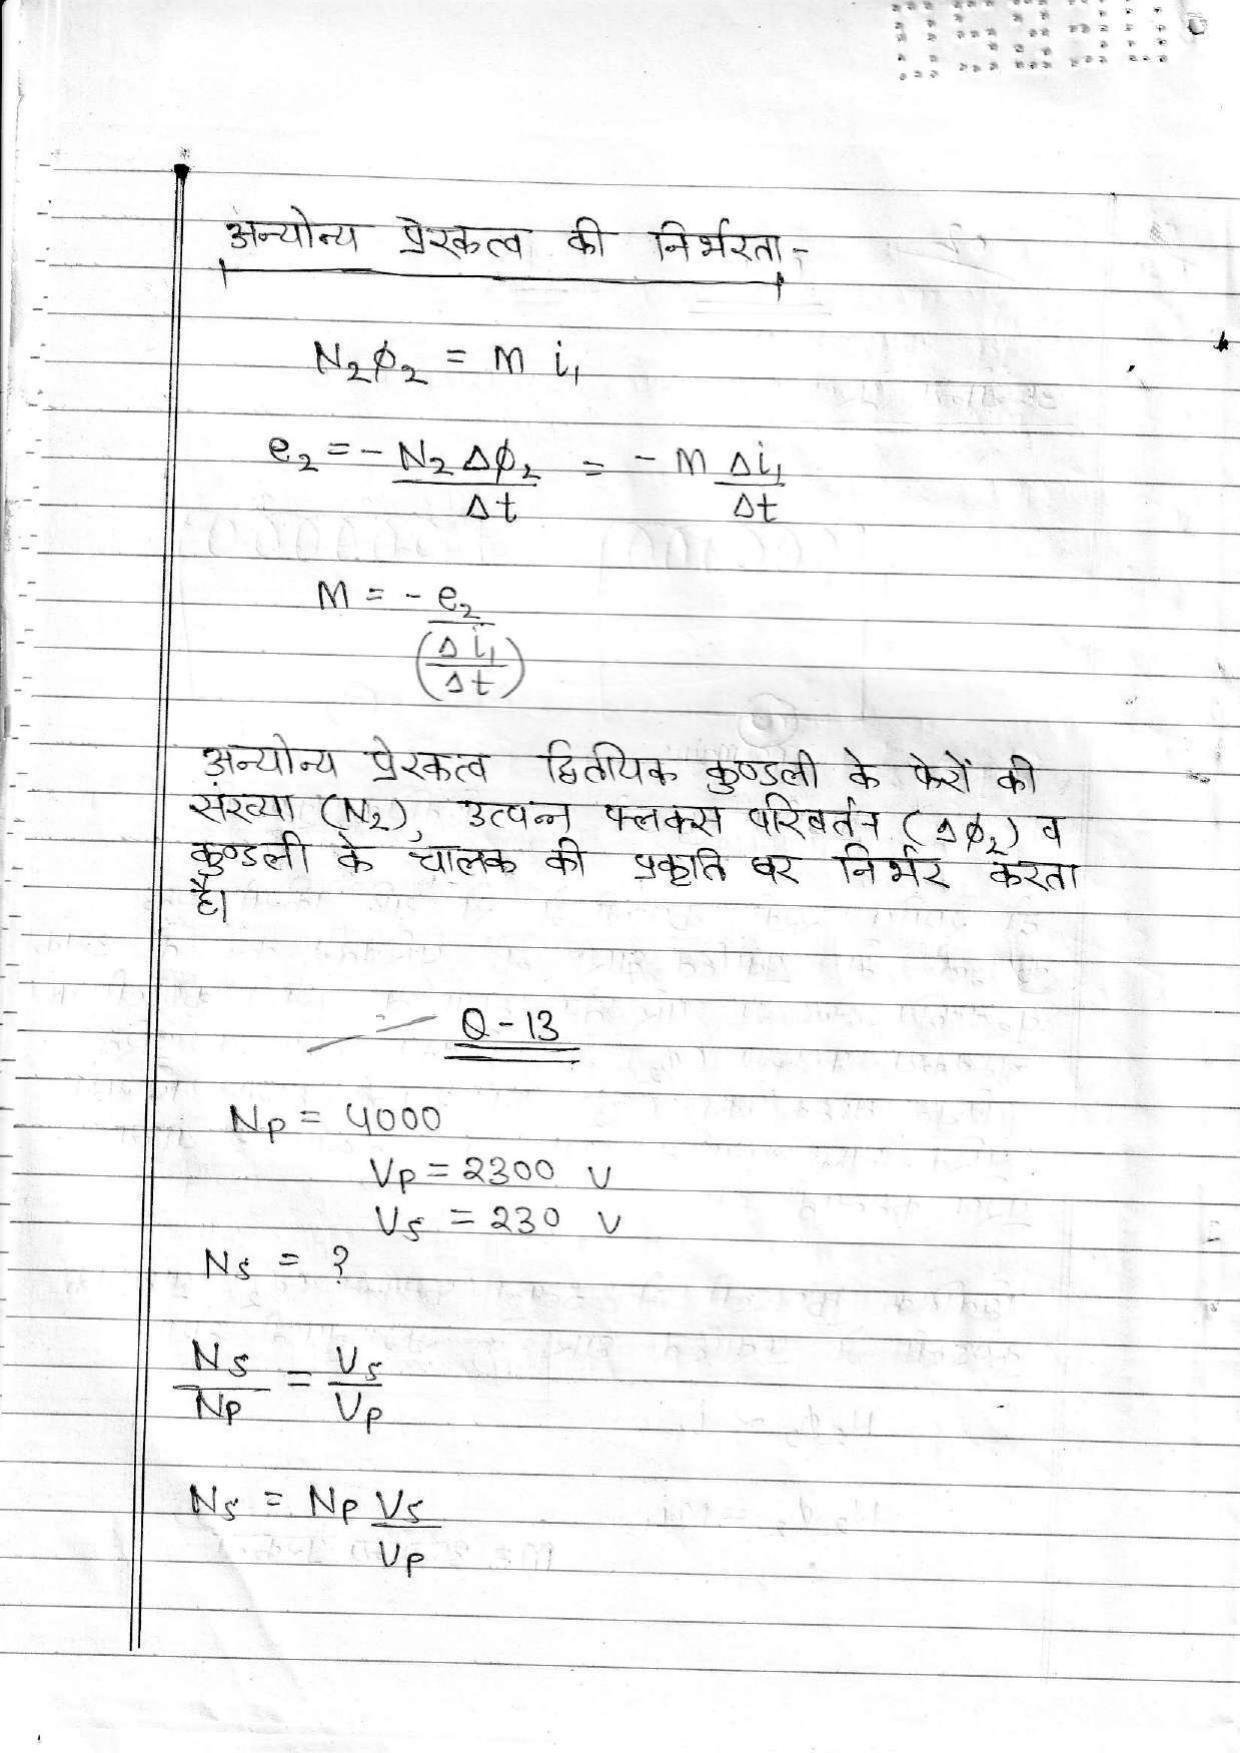 अन्योन्य प्रेरकत्व की निर्भरता -
N₂ϕ₂ = m i₁
e₂ = - N₂ Δϕ₂ / Δt = - m Δi₁ / Δt
M = - e₂ / (Δi₁ / Δt)
अन्योन्य प्रेरकत्व द्वितीयक कुण्डली के फेरों की
संख्या (N₂), उत्पन्न फ्लक्स परिवर्तन (Δϕ₂) व
कुण्डली के चालक की प्रकृति पर निर्भर करता
है।
Q - 13
Np = 4000
Vp = 2300 V
Vs = 230 V
Ns = ?
Ns / Np = Vs / Vp
Ns = Np Vs / Vp